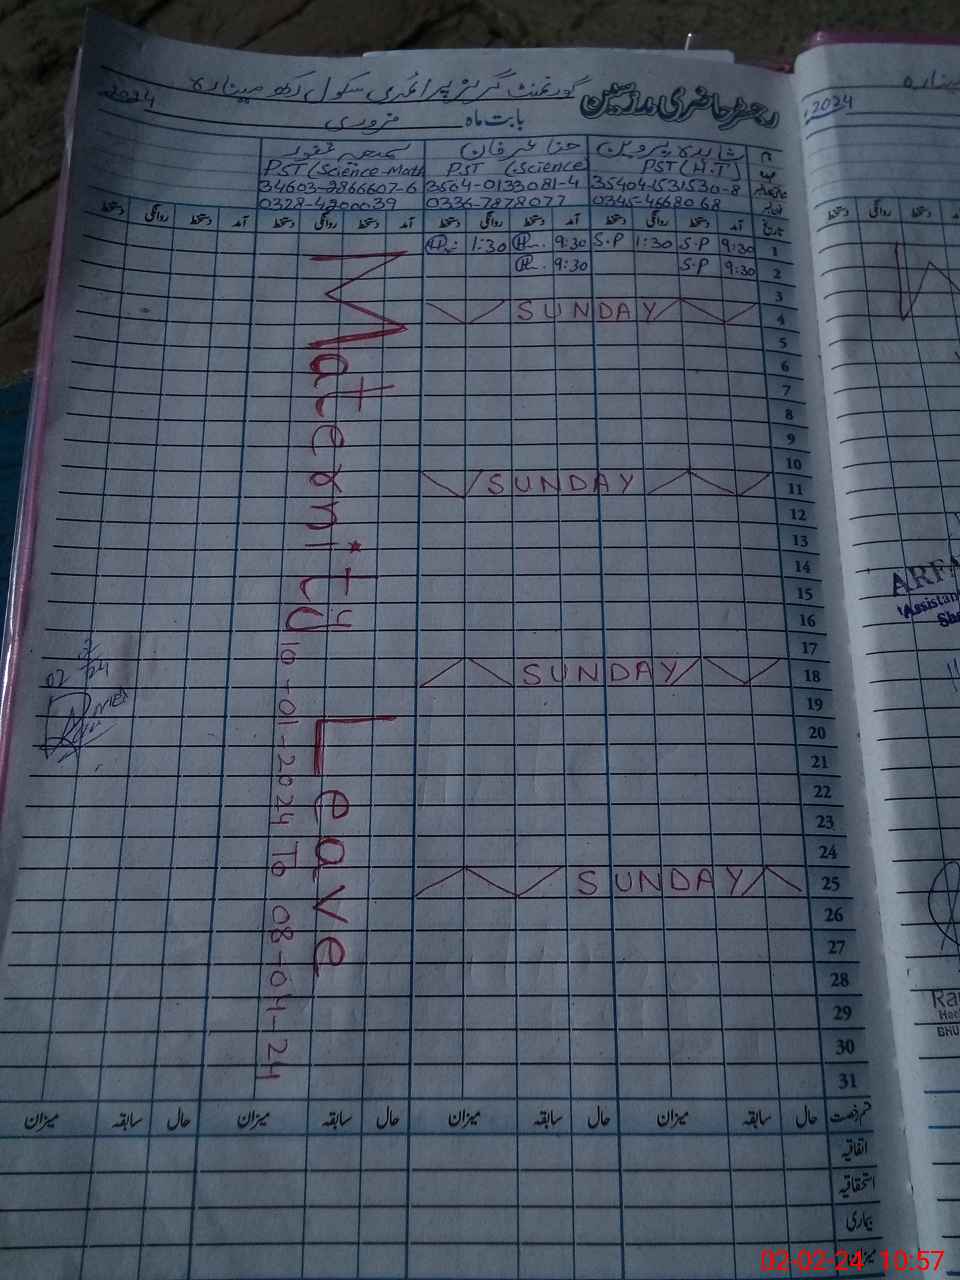 رجسٹر حاضری مدرسین گورنمنٹ گرلز پرائمری سکول رکھ مینارہ
بابت ماہ فروری 2024
شاہدہ پروین حنا عرفان سمیعہ غفور
PST (H.T) PST (Science) PST (Science-Math
35404-1531530-8 3504-0133081-4 34603-2866607-6
0345-4668068 0336-7878077 0328-4200039
تاریخ آمد دستخط روانگی دستخط آمد دستخط روانگی دستخط آمد دستخط روانگی دستخط آمد دستخط روانگی دستخط
1 9:30 S.P 1:30 S.P 9:30 1:30
2 9:30 S.P 9:30
3
4 SUNDAY
5
6
7
8
9
10
11 SUNDAY
12
13
14
15
16
17
18 SUNDAY
19
20
21
22
23
24
25 SUNDAY
26
27
28
29
30
31
Maternity Leave
10-01-2024 To 08-04-24
02/2/24
قسم رخصت حال سابقہ میزان حال سابقہ میزان حال سابقہ میزان حال سابقہ میزان
اتفاقیہ
استحقاقیہ
بیماری
میزان
2024
مینارہ
دستخط روانگی دستخط
ARFA
Assistan
She
Ra
Hea
BHU
02-02-24 10:57